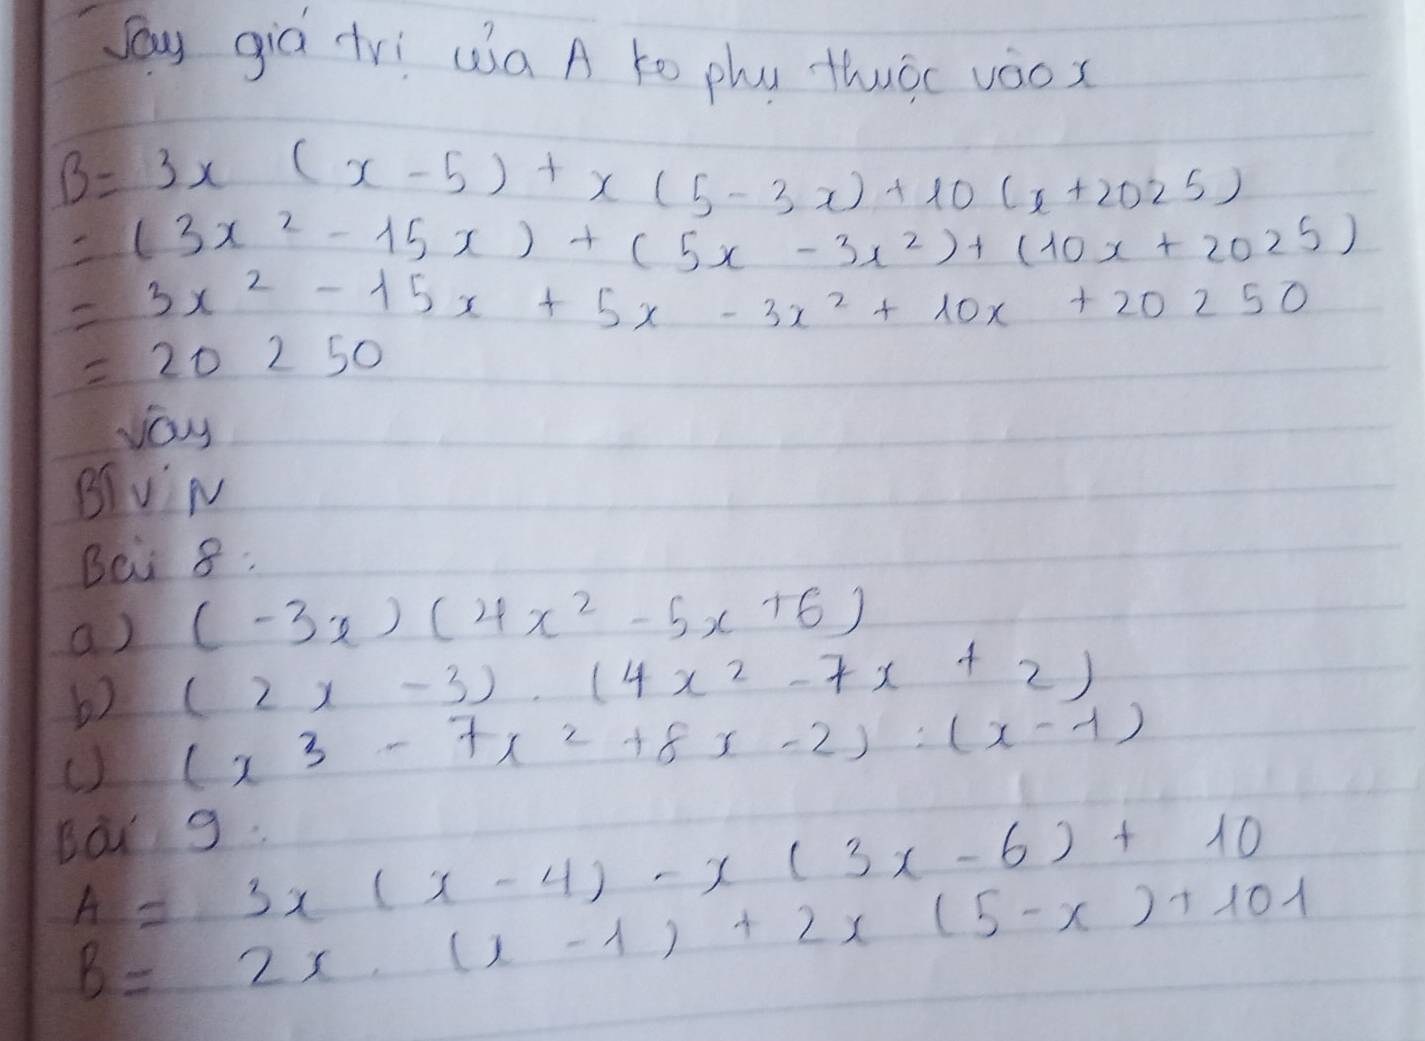 Vậy giá trị của A ko phụ thuộc vào x
B = 3x (x - 5) + x (5 - 3x) + 10 (x + 2025)
= (3x² - 15x) + (5x - 3x²) + (10x + 2025)
= 3x² - 15x + 5x - 3x² + 10x + 20250
= 20250
Vậy
BTVN
Bài 8:
a) (-3x) (4x² - 5x + 6)
b) (2x - 3) . (4x² - 7x + 2)
c) (x³ - 7x² + 8x - 2) : (x - 1)
Bài 9:
A = 3x (x - 4) - x (3x - 6) + 10
B = 2x . (x - 1) + 2x (5 - x) + 101